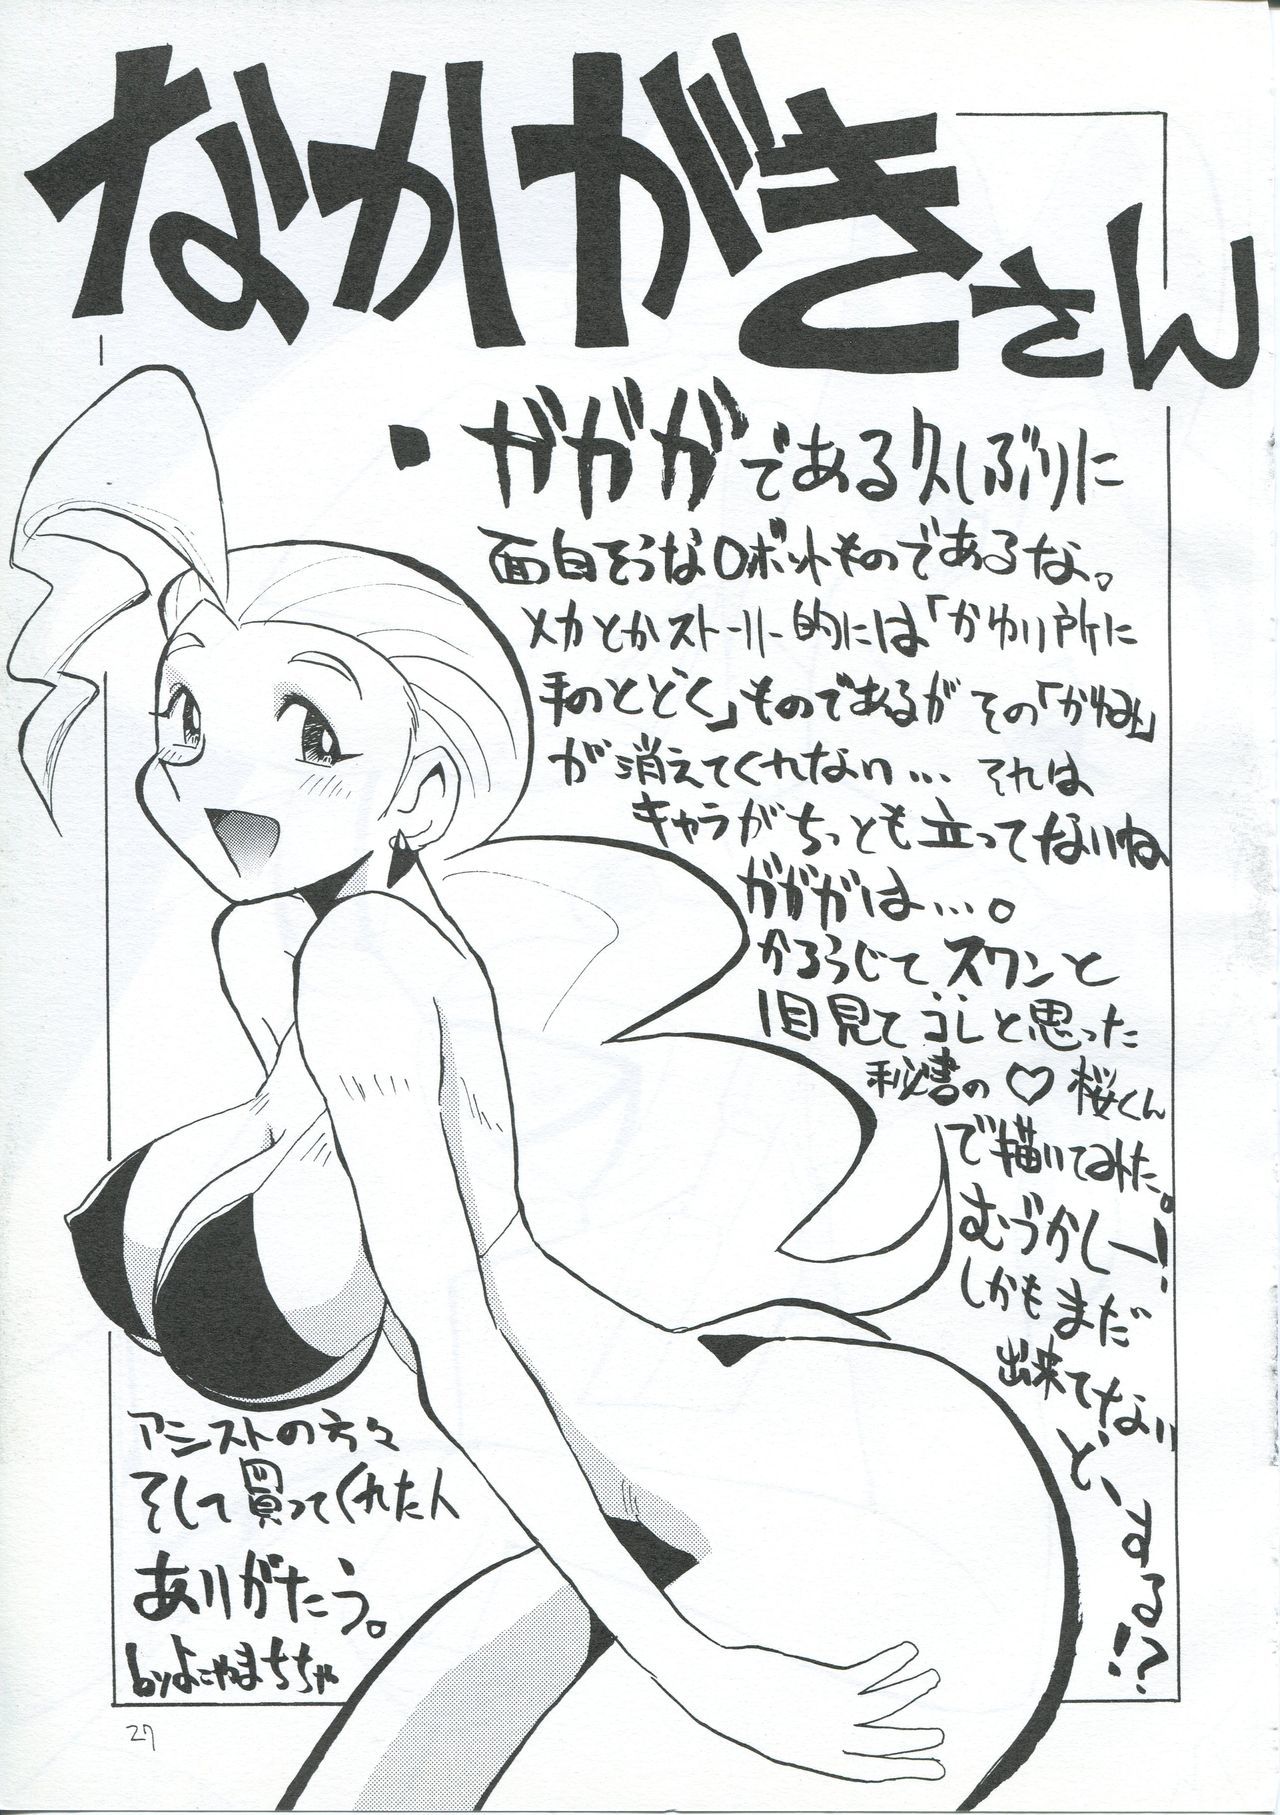 なかがきさん
・ガガガである久しぶりに
面白そうなロボットものであるな。
メカとかストーリー的には「かゆい所に
手のとどく」ものであるがその「かゆみ」
が消えてくれない…それは
キャラがちっとも立ってないね
ガガガは…。
かろうじてスワンと
1目見てコレと思った
秘書の♡桜くん
で描いてみた。
むづかしー!
しかもまだ
出来てない
ど、する!?
アシストの方々
そして買ってくれた人
ありがたう。
byよこやまちちゃ
27